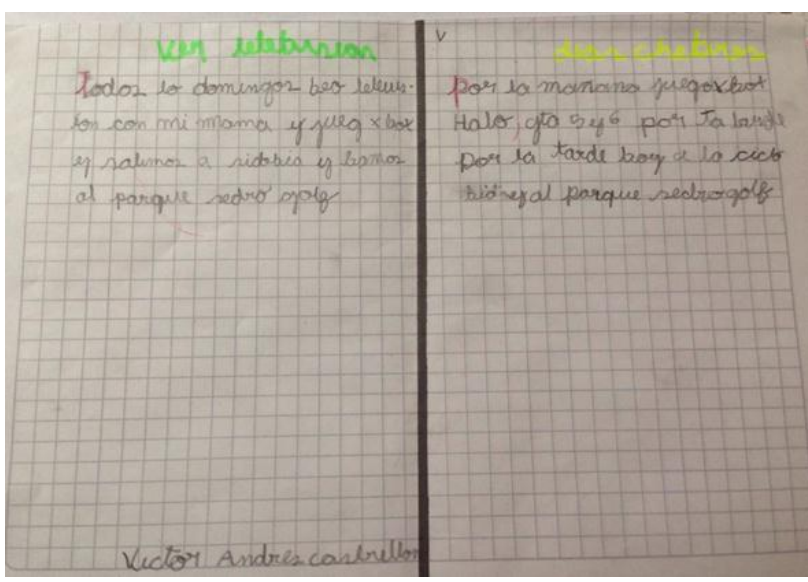 ver telebision
Todos lo domingos beo telewi-
son con mi mama y jueg xbox
y salimos a siclobia y bamos
al parque sedro golf
Victor Andres castrellon
V
dias chebres
Por la mañana juego xbox
Halo, gta 5 y 6 por Ta larde
por la tarde boy a la ciclo
bia y al parque sedro golf